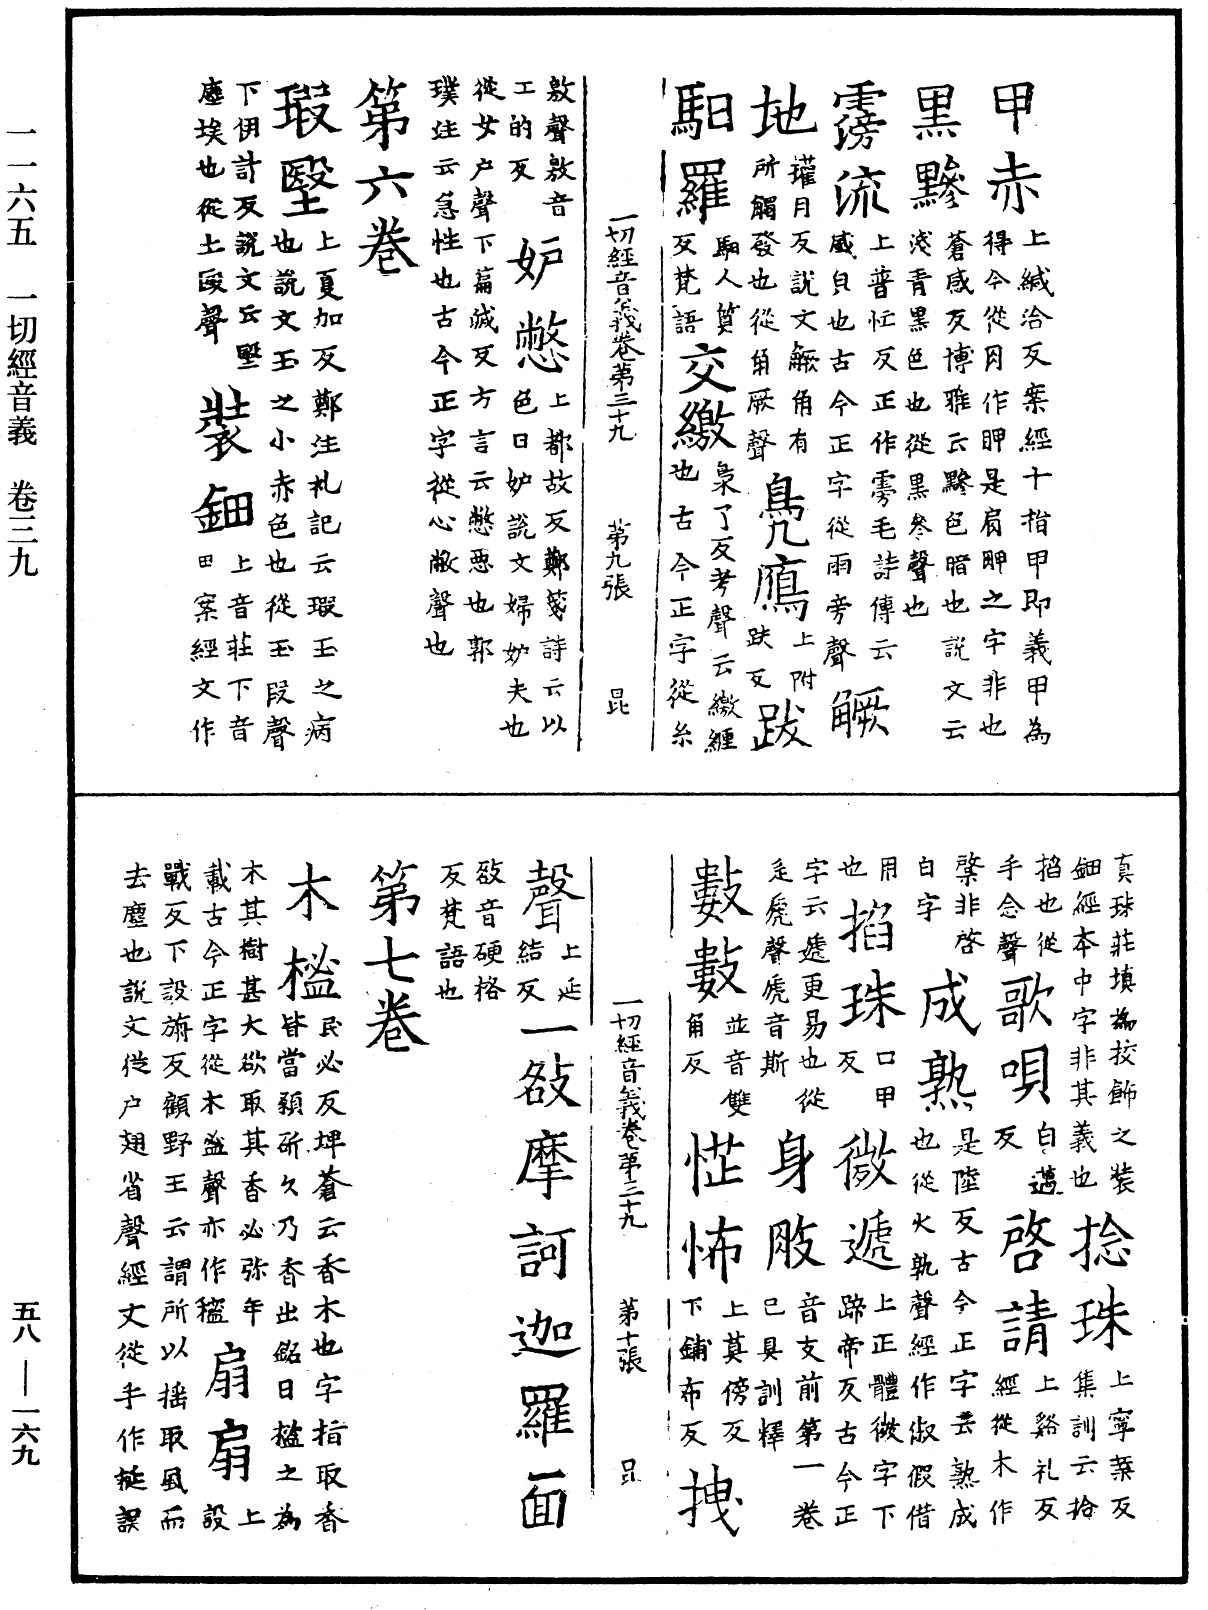 一一六五 一切經音義 卷三九
甲赤上緘洽反案經十指甲即義甲為得今從月作胛是肩胛之字非也
黑黲蒼感反博雅云黲色暗也說文云淺青黑色也從黑參聲也
霶流上普忙反正作雱毛詩傳云盛皃也古今正字從雨旁聲 鱖
地瓘月反說文觼角有所觸發也從角厥聲 鳧鴈上附趺反 跋
馹羅馹人質反梵語 交繳梟了反考聲云繳纏也古今正字從糸
一切經音義卷第三十九 第九張 昆
敫聲敫音工的反 妒憋上都故反鄭箋詩云以色曰妒說文婦妒夫也
從女户聲下萹滅反方言云憋惡也郭璞注云急性也古今正字從心敝聲也
第六卷
瑕墼上夏加反鄭注礼記云瑕玉之病也說文玉之小赤色也從玉叚聲
下伊計反說文云墼塵埃也從土殹聲 裝鈿上音莊下音田案經文作
真珠莊填為挍飾之裝鈿經本中字非其義也 捻珠上寧葉反集訓云捻
掐也從手念聲 歌唄白邁反 啓請上谿礼反經從木作
棨非啓白字 成熟是陸反古今正字云熟成也從火孰聲經作俶假借
用也 掐珠口甲反 微遞上正體微字下蹄帝反古今正
字云遞更易也從辵虒聲虒音斯 身肢音支前第一卷已具訓釋
數數並音雙角反 𢗅怖上莫傍反下鋪布反 拽
一切經音義卷第三十九 第十張 昆
聲上延結反 一敆摩訶迦羅面
敆音硬格反梵語也
第七卷
木榓民必反埤蒼云香木也字指取香皆當預斫久乃香出銘曰榓之為
木其樹甚大欲取其香必弥年載古今正字從木蜜聲亦作櫁 扇扇上設
戰反下設旃反顧野王云謂所以搖取風而去塵也說文從户翅省聲經文從手作挻誤
五八—一六九